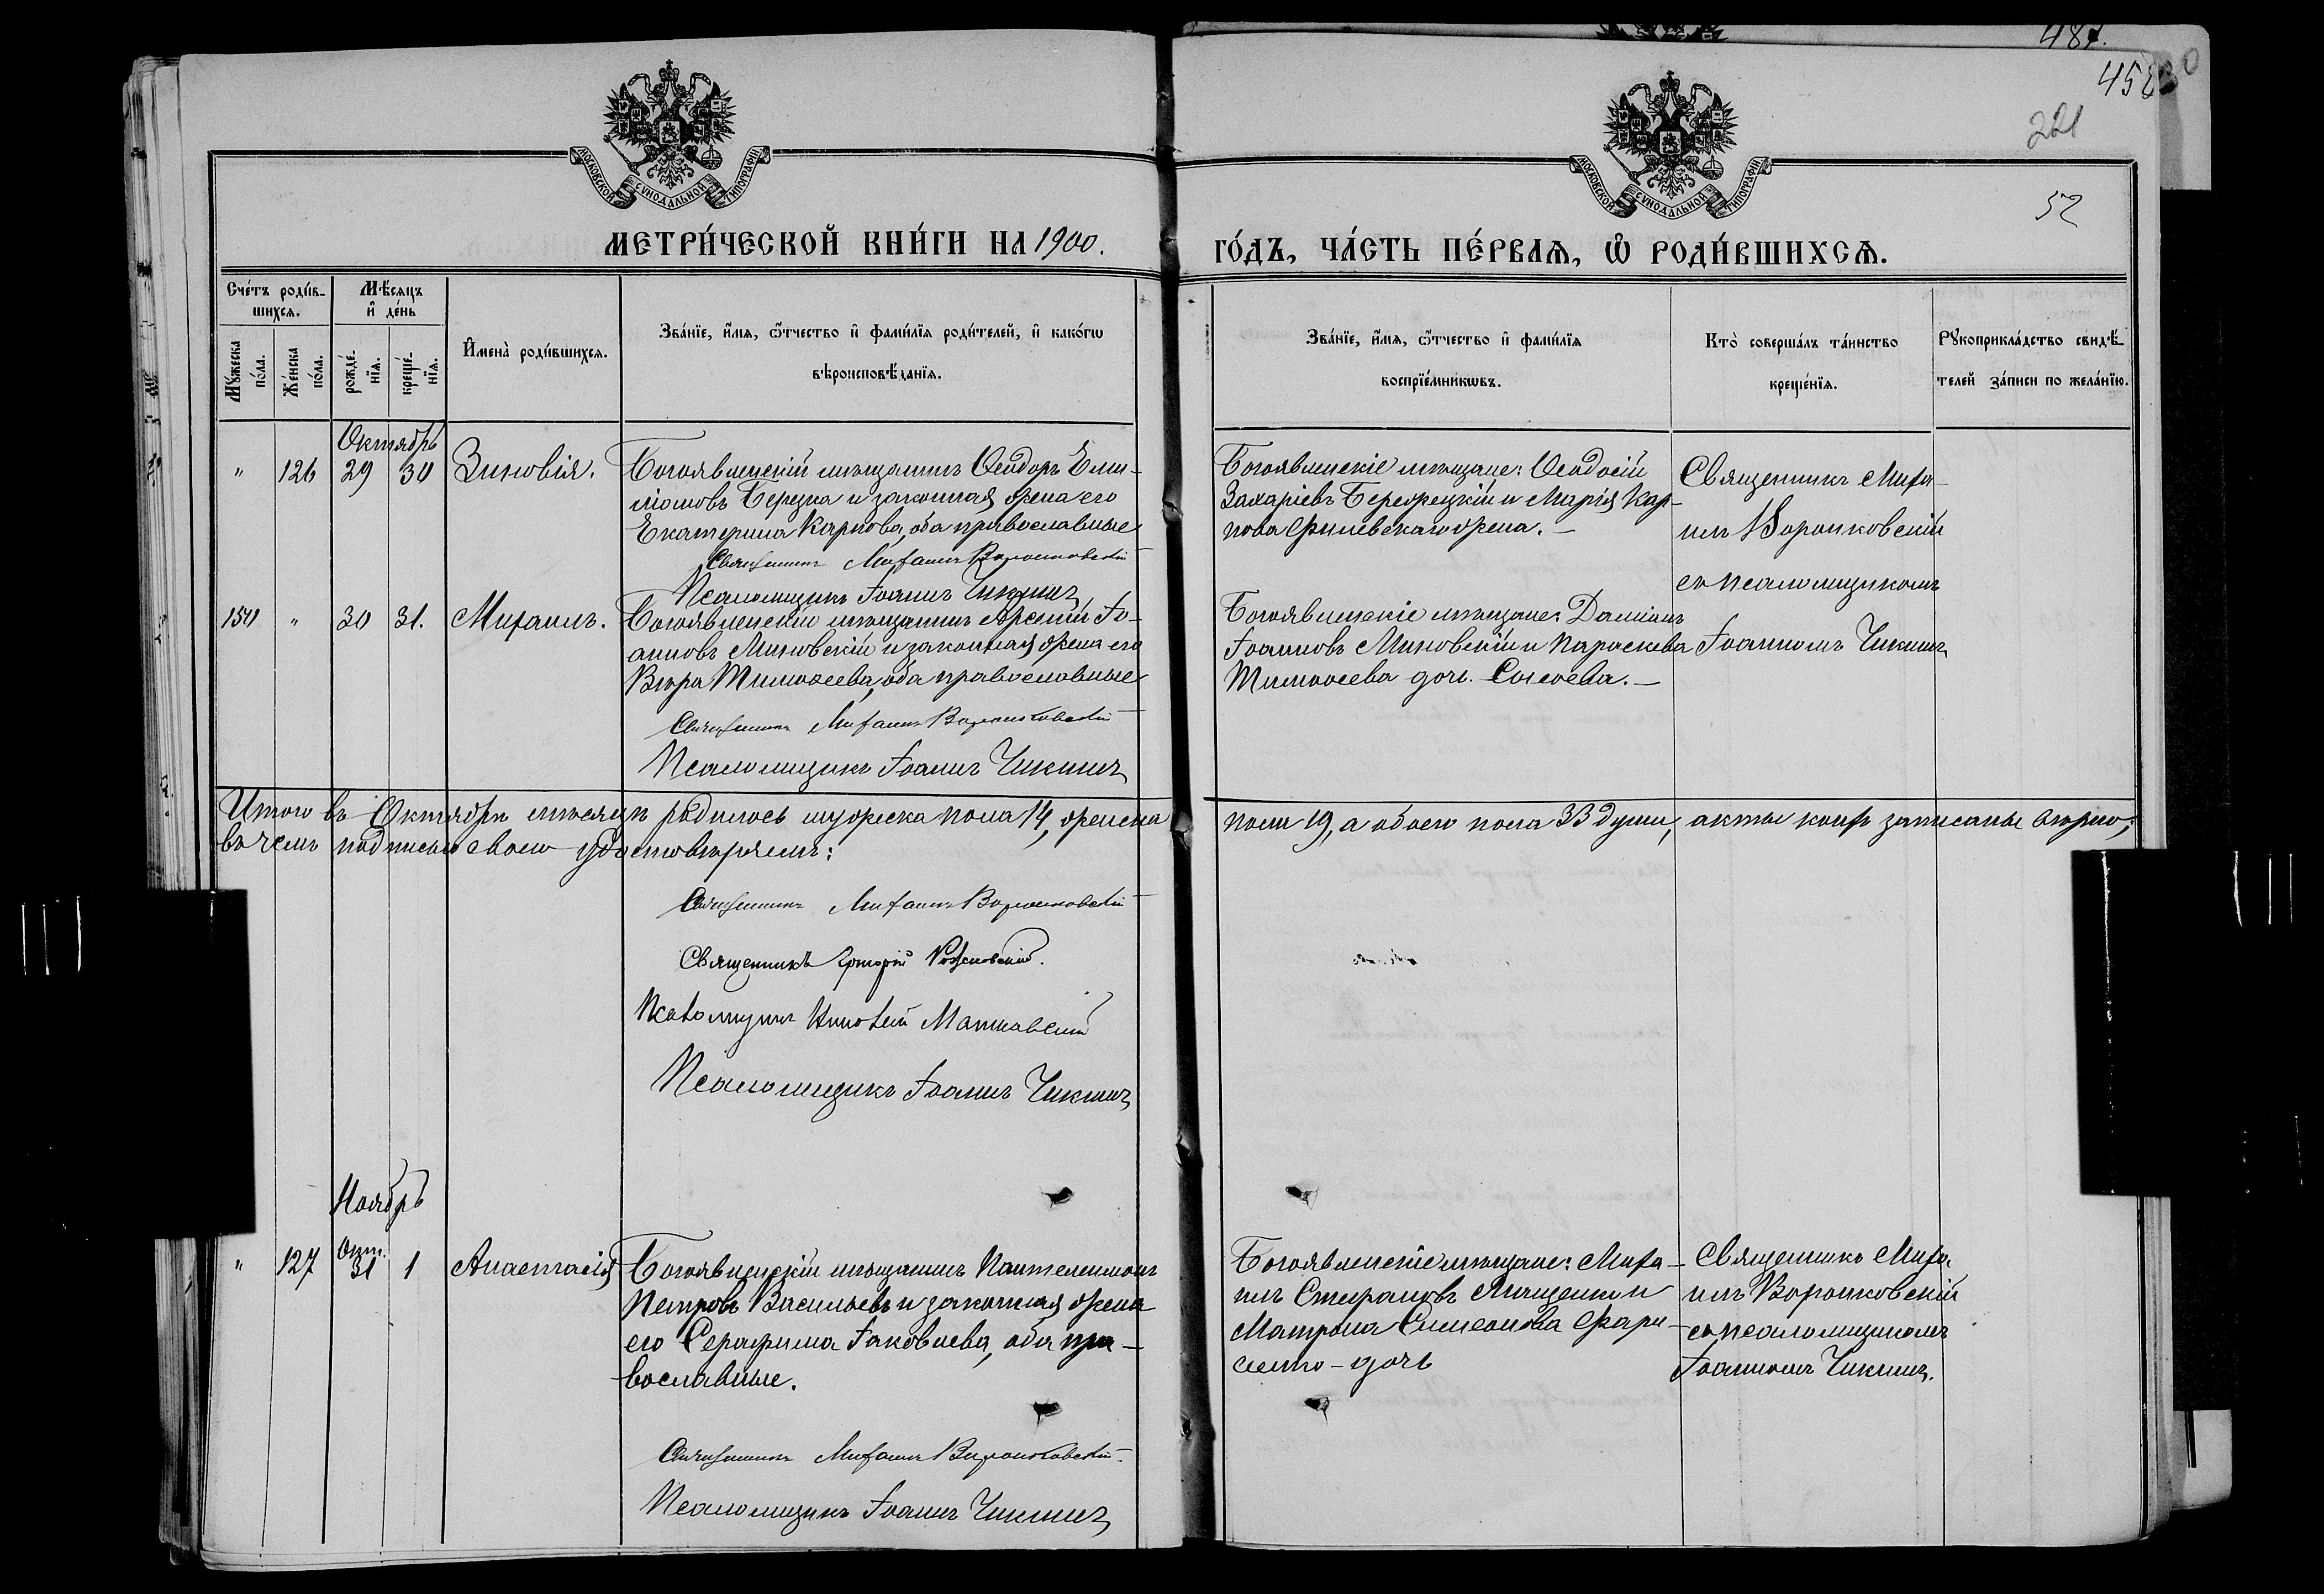 487.
452
221
52
МОСКОВСКОЙ СѴНОДАЛЬНОЙ ТИПОГРАФІИ
МОСКОВСКОЙ СѴНОДАЛЬНОЙ ТИПОГРАФІИ
МЕТРИ́ЧЕСКОЙ КНИ́ГИ НА 1900.
ГО́ДЪ, ЧА́СТЬ ПЕ́РВАѦ, Ѡ РОДИ́ВШИХСѦ.
Сче́тъ роди́в-
шихсѧ.
Мꙋ́жеска по́ла.
Же́нска по́ла.
Мѣ́сяцъ
и де́нь
рожде́-нїѧ.
креще́-нїѧ.
Имена̀ роди́вшихсѧ.
Зва́нїе, и́мѧ, ѻ́тчество и фами́лїѧ роди́телей, и како́гѡ
вѣроисповѣ́данїѧ.
Зва́нїе, и́мѧ, ѻ́тчество и фами́лїѧ
воспрїе́мникѡвъ.
Кто̀ соверша́лъ та́инство
креще́нїѧ.
Рꙋкоприкла́дство свидѣ́-
телей за́писи по жела́нїю.
Октябрь
" 126 29 30 Зиновія.
Богоявленскій мѣщанинъ Ѳеодоръ Емили-
ліоновъ Березка и законная жена его
Екатерина Карпова, оба православные
Священникъ Михаилъ Воронковскій
Псаломщикъ Іоаннъ Чикминъ
Богоявленскіе мѣщане: Ѳеодосій
Захаріевъ Бережецкій и Марія Кар-
пова Филевскаго жена. —
Священникъ Миха-
илъ Воронковскій
съ псаломщикомъ
Іоанномъ Чикминъ
" 30 31. Михаилъ.
Богоявленскій мѣщанинъ Арсеній Іо-
анновъ Миновскій и законная жена его
Вѣра Тимоѳеева, оба православные
Священникъ Михаилъ Воронковскій
Псаломщикъ Іоаннъ Чикминъ
Богоявленскіе мѣщане: Даміанъ
Іоанновъ Миновскій и Параскева
Тимоѳеева доч.
Итого въ Октябрѣ мѣсяцѣ родилось мужеска пола 14, женска
пола 19, а обоего пола 33 души, акты коихъ записаны вѣрно;
въ чемъ подписью своею удостовѣряемъ:
Священникъ Михаилъ Воронковскій
Священникъ Григорій
Псаломщикъ Матковскій
Псаломщикъ Іоаннъ Чикминъ
Ноябрь
" 127 Окт. 31 1 Анастасія
Богоявленскій мѣщанинъ Пантелеимонъ
Петровъ Васильевъ и законная жена
его Серафима Іаковлева, оба пра-
вославные.
Священникъ Михаилъ Воронковскій.
Псаломщикъ Іоаннъ Чикминъ
Богоявленскіе мѣщане: Миха-
илъ Стефановъ Мащенко и
Матрона Симеонова
дочь
Священникъ Миха-
илъ Воронковскій
съ псаломщикомъ
Іоанномъ Чикминъ.